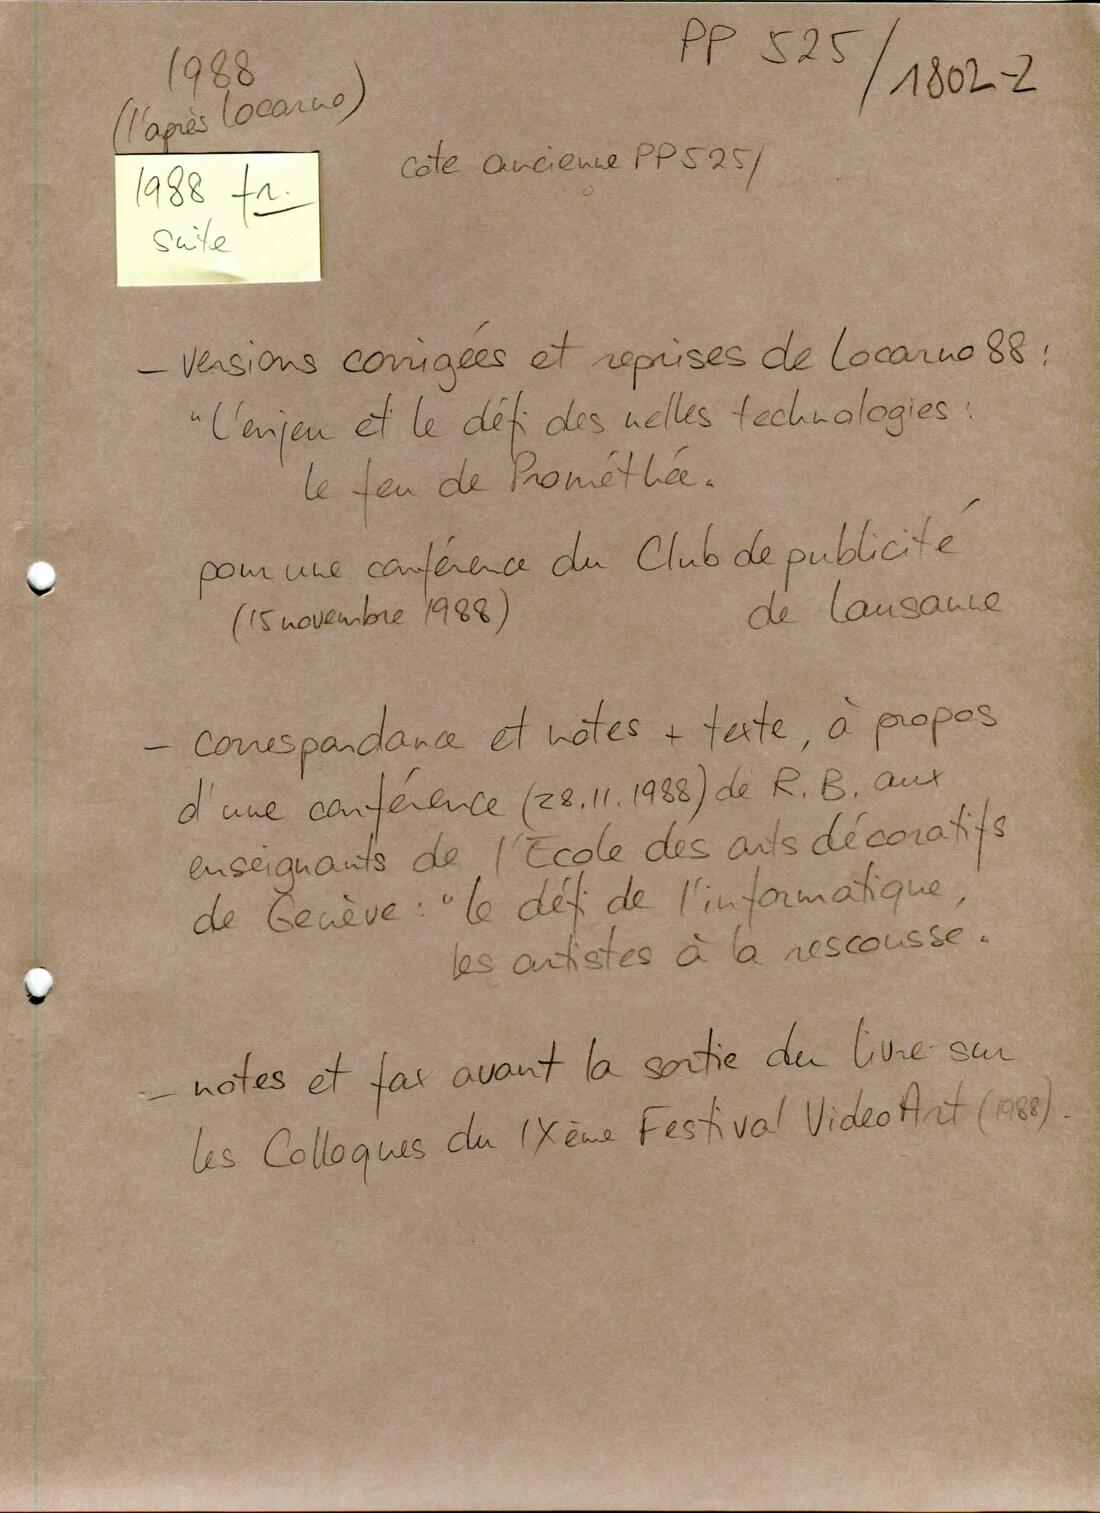 PP 525/1802-2
1988
(l'après Locarno)
cote ancienne PP525/
1988 fr.
suite
– versions corrigées et reprises de Locarno 88 :
"L'enjeu et le défi des nelles technologies :
le feu de Prométhée.
pour une conférence du Club de publicité
(15 novembre 1988) de Lausanne
– correspondance et notes + texte, à propos
d'une conférence (28.11.1988) de R.B. aux
enseignants de l'Ecole des arts décoratifs
de Genève : "le défi de l'informatique,
les artistes à la rescousse.
– notes et fax avant la sortie du livre sur
les Colloques du IXème Festival VideoArt (1988).